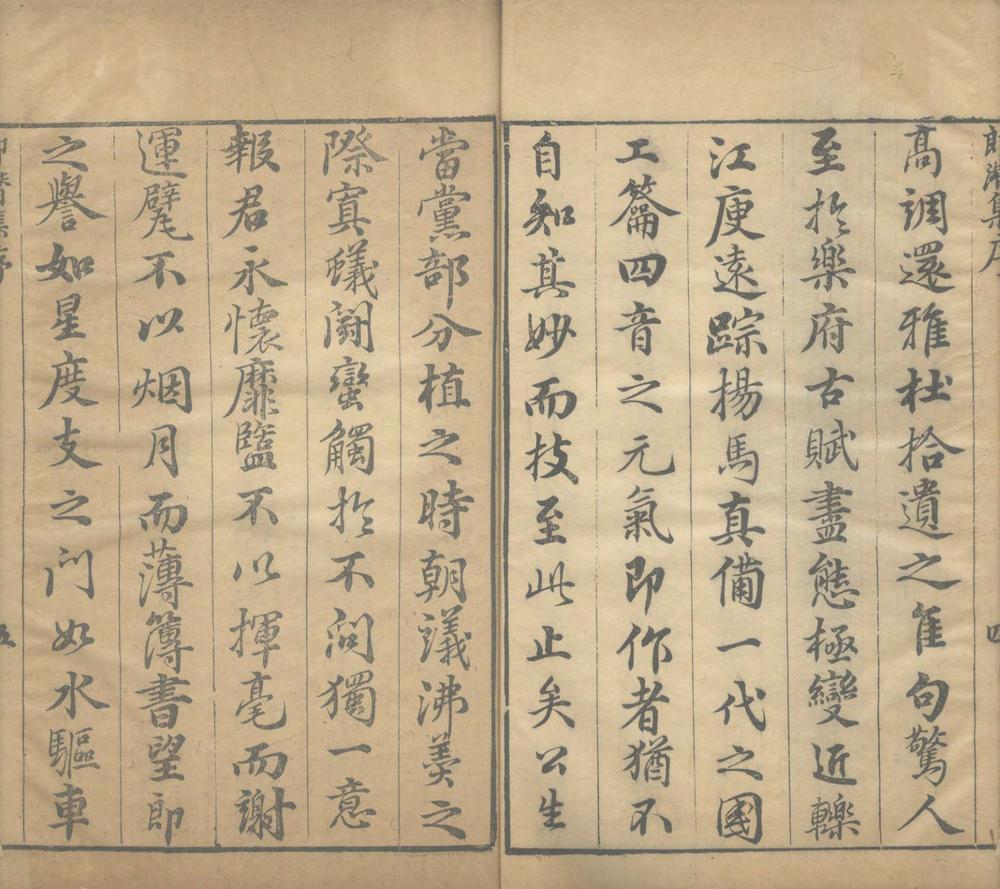 高調還雅杜拾遺之隹句驚人
至於樂府古賦盡態極變近轢
江庾遠踪揚馬真備一代之國
工籥四音之元氣即作者猶不
自知其妙而技至此止矣公生
當黨部分植之時朝議沸羹之
際寘蟻鬪蠻觸於不問獨一意
報君永懷靡盬不以揮毫而謝
運甓不以烟月而薄簿書望郎
之譽如星度支之门如水驅車